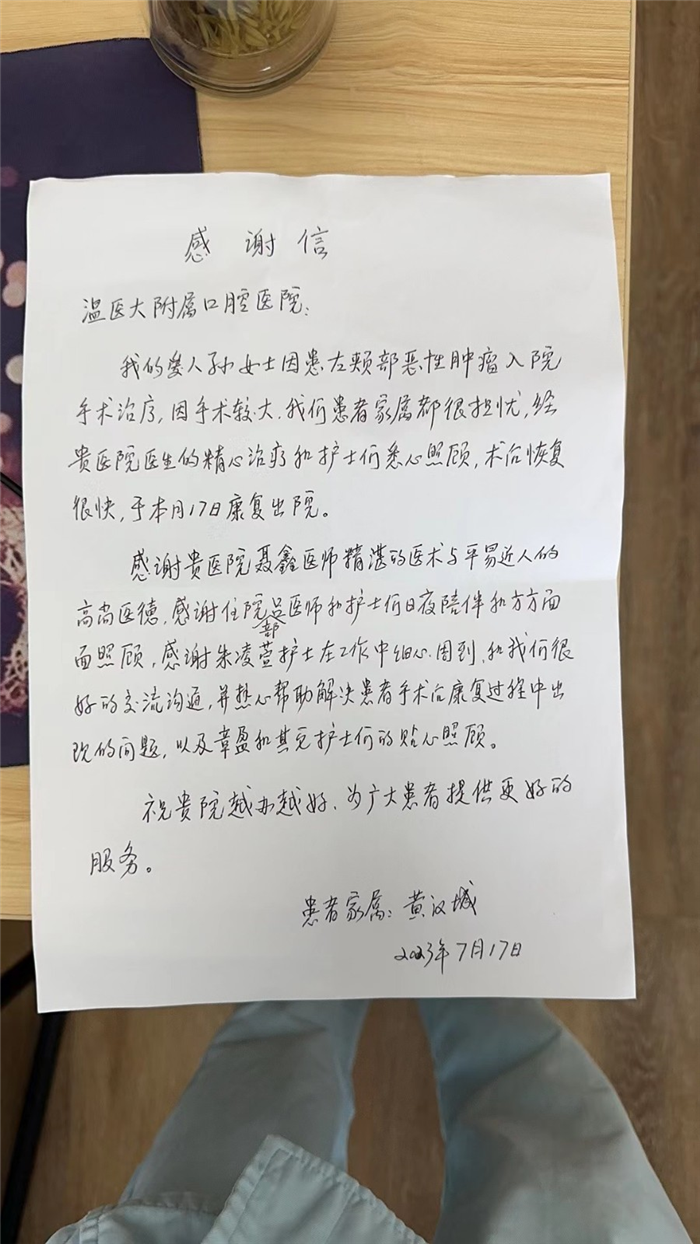 感谢信
温医大附属口腔医院:
我的爱人孙女士因患左颊部恶性肿瘤入院
手术治疗,因手术较大.我们患者家属都很担忧,经
贵医院医生的精心治疗和护士们悉心照顾,术后恢复
很快,于本月17日康复出院。
感谢贵医院聂鑫医师精湛的医术与平易近人的
高尚医德,感谢住院部医师和护士们日夜陪伴和方方面
面照顾,感谢朱凌萱护士在工作中细心.周到,和我们很
好的交流沟通,并热心帮助解决患者手术后康复过程中出
现的问题,以及章盈和其它护士们的贴心照顾。
祝贵院越办越好.为广大患者提供更好的
服务。
患者家属:黄汉城
2023年7月17日